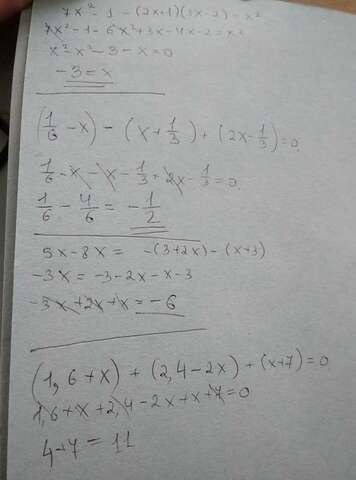 7x² - 1 - (2x+1)(3x-2) = x²
7x² - 1 - 6x² + 3x - 4x - 2 = x²
x² - x² - 3 - x = 0
-3 = x
(1/6 - x) - (x + 1/3) + (2x - 1/3) = 0
1/6 - x - x - 1/3 + 2x - 1/3 = 0
1/6 - 4/6 = - 1/2
5x - 8x = -(3+2x) - (x+3)
-3x = -3 - 2x - x - 3
-3x + 2x + x = -6
(1,6 + x) + (2,4 - 2x) + (x+7) = 0
1,6 + x + 2,4 - 2x + x + 7 = 0
4+7 = 11